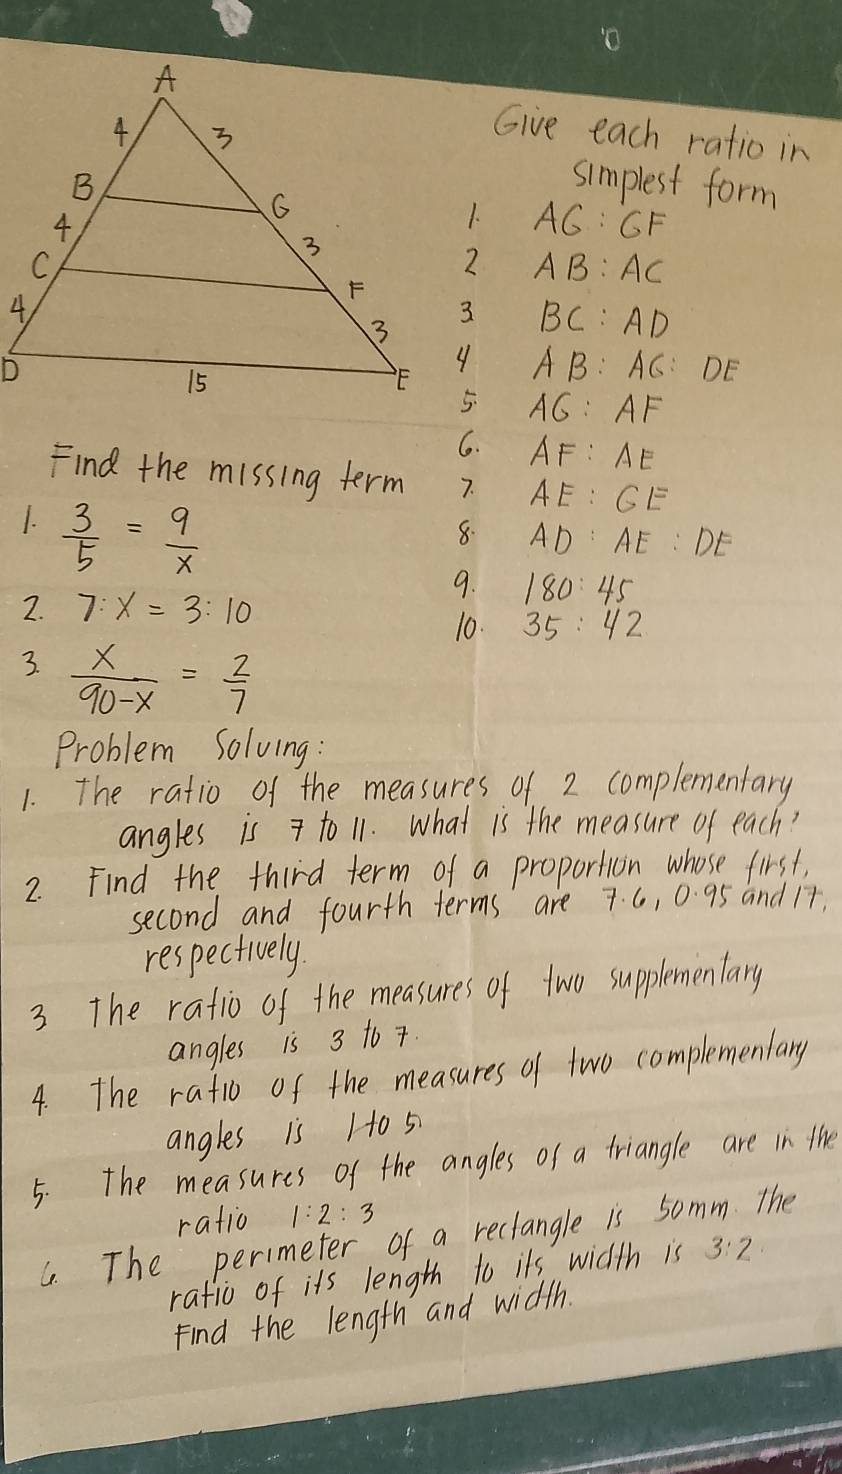 A
4
3
B
G
4
3
C
F
4
3
D
15
E
Give each ratio in
simplest form
1. AG : GF
2 AB : AC
3 BC : AD
4 AB : AG : DE
5. AG : AF
6. AF : AE
7. AE : GE
8. AD : AE : DE
9. 180 : 45
10. 35 : 42
Find the missing term
1. 3/5 = 9/x
2. 7 : x = 3 : 10
3. x/90-x = 2/7
Problem Solving:
1. The ratio of the measures of 2 complementary
angles is 7 to 11. What is the measure of each?
2. Find the third term of a proportion whose first,
second and fourth terms are 7.6, 0.95 and 17,
respectively.
3 The ratio of the measures of two supplementary
angles is 3 to 7.
4. The ratio of the measures of two complementary
angles is 1 to 5
5. The measures of the angles of a triangle are in the
ratio 1 : 2 : 3
6. The perimeter of a rectangle is 50mm. The
ratio of its length to its width is 3:2.
Find the length and width.